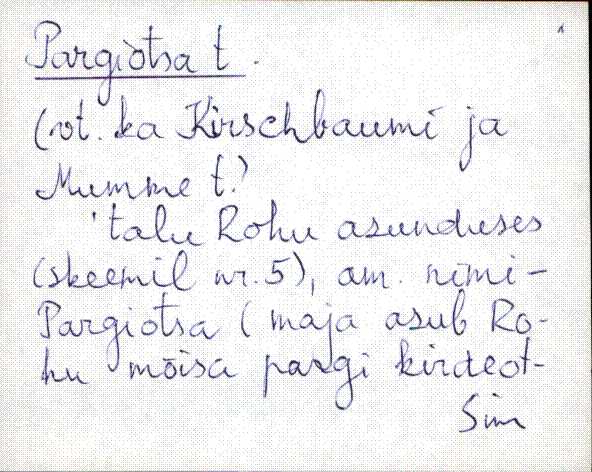 Pargiotsa t.
(vt. ka Kirschbaumi ja
Mumme t.)
'talu Rohu asunduses
(skeemil nr. 5), am. nimi-
Pargiotsa (maja asub Ro-
hu mõisa pargi kirdeot-
Sim